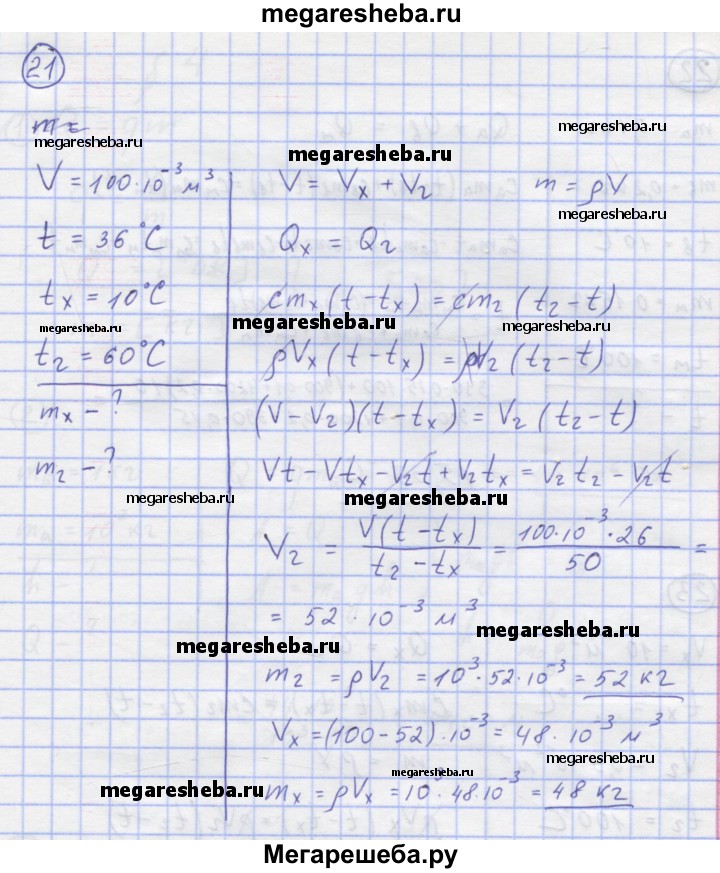 megaresheba.ru
21
m =
megaresheba.ru
V = 100·10⁻³ м³
t = 36°C
tₓ = 10°C
megaresheba.ru
t₂ = 60°C
mₓ - ?
m₂ - ?
megaresheba.ru
megaresheba.ru
V = Vₓ + V₂ m = ρV
megaresheba.ru
megaresheba.ru
Qₓ = Q₂
cmₓ(t - tₓ) = cm₂(t₂ - t)
megaresheba.ru megaresheba.ru
ρVₓ(t - tₓ) = ρV₂(t₂ - t)
(V - V₂)(t - tₓ) = V₂(t₂ - t)
Vt - Vtₓ - V₂t + V₂tₓ = V₂t₂ - V₂t
megaresheba.ru
V₂ = V(t - tₓ) / (t₂ - tₓ) = 100·10⁻³·26 / 50 =
= 52·10⁻³ м³
megaresheba.ru
megaresheba.ru
m₂ = ρV₂ = 10³·52·10⁻³ = 52 кг
Vₓ = (100 - 52)·10⁻³ = 48·10⁻³ м³
megaresheba.ru
megaresheba.ru
megaresheba.ru
mₓ = ρVₓ = 10³·48·10⁻³ = 48 кг
Мегарешеба.ру